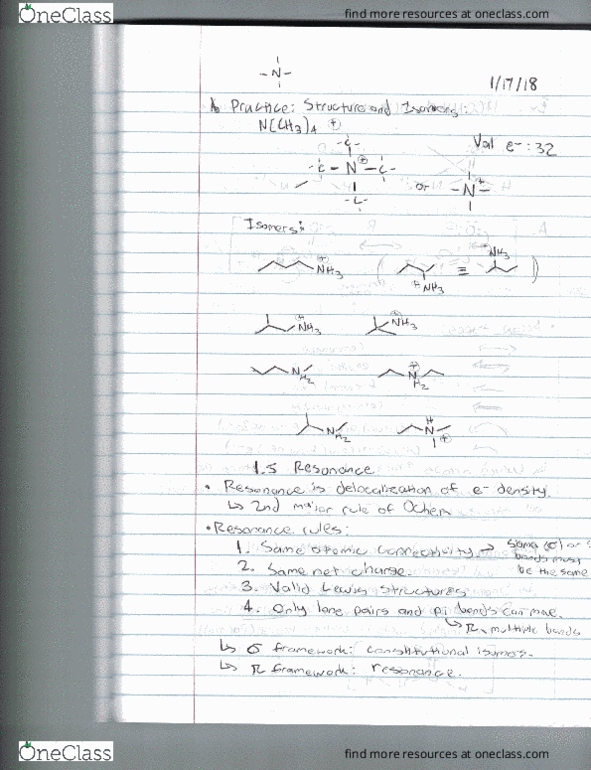 OneClass find more resources at oneclass.com
-N-
1/17/18
Practice: Structure and Isomers:
N(CH3)4 ⊕
Val e-: 32
-C-
-C-N⊕-C-
-C-
or -N+-
Isomers:
⊕NH3
⊕NH3 ≡ NH3
⊕NH3 ⊕NH3
N⊕H2 N⊕H2
N⊕H2 H N ⊕
1.5 Resonance
• Resonance is delocalization of e- density.
↳ 2nd major rule of Ochem
• Resonance rules:
1. Same atomic connectivity → sigma (σ) or
bonds must
be the same
2. Same net charge.
3. Valid Lewis Structures
4. Only lone pairs and pi bonds can move.
↳ π, multiple bonds
↳ σ framework: constitutional isomers.
↳ π framework: resonance.
OneClass find more resources at oneclass.com